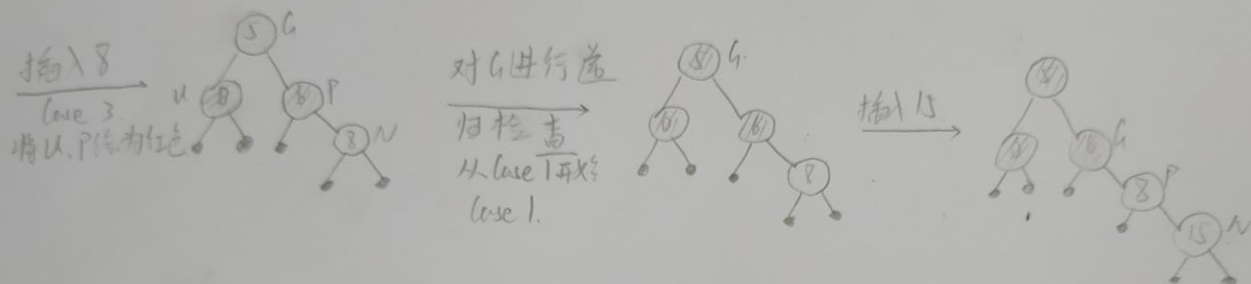 插入8
Case 3
将U、P绘为红色
5 G
U
6 P
8 N
对G进行递
归检查
从Case 1开始
Case 1.
5 G.
6
8
插入15
5
6 G
8 P
15 N